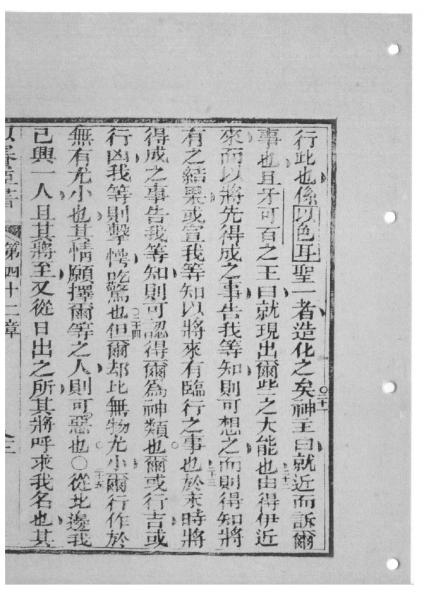 行此也係以色耳聖一者造化之矣神王曰就近而訴爾
事也且牙可百之王曰就現出爾些之大能也由得伊近
來而以將先得成之事告我等知則可想之而則得知將
有之結果或宣我等知以將來有臨行之事也於來時將
得成之事告我等知則可認得爾為神類也爾或行吉或
行凶我等則擊愕吃驚也但爾都比無物尤小爾行作於
無有尤小也其情願擇爾等之人則可惡也○從北邊我
己興一人且其將至又從日出之所其將呼求我名也其
第四十二章